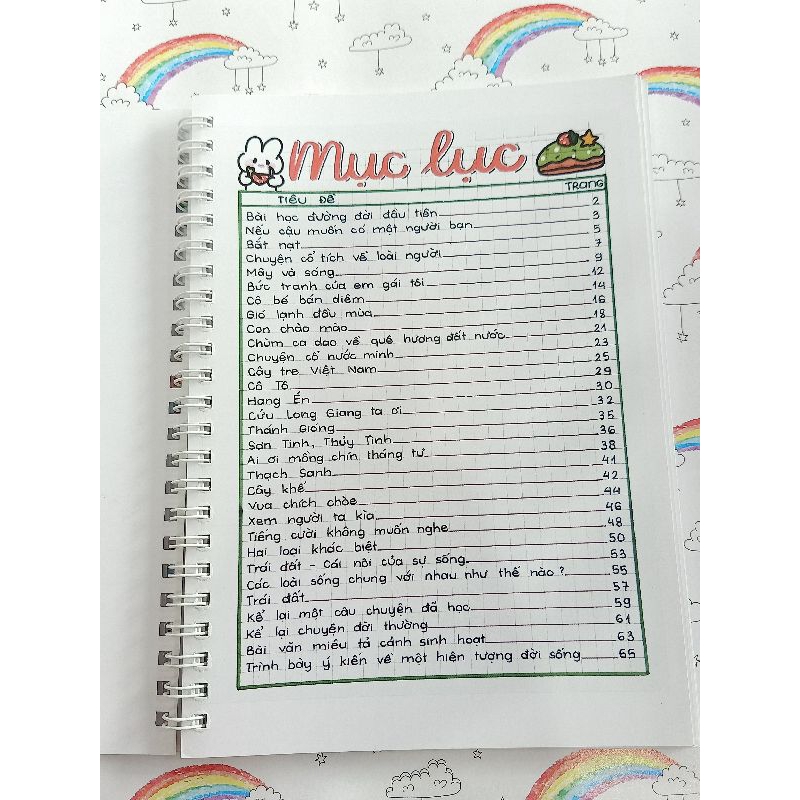 Mục lục
TIÊU ĐỀ TRANG
Bài học đường đời đầu tiên 2
Nếu cậu muốn có một người bạn 3
Bắt nạt 5
Chuyện cổ tích về loài người 7
Mây và sóng 9
Bức tranh của em gái tôi 12
Cô bé bán diêm 14
Gió lạnh đầu mùa 16
Con chào mào 18
Chùm ca dao về quê hương đất nước 21
Chuyện cổ nước mình 23
Cây tre Việt Nam 25
Cô Tô 29
Hang Én 30
Cửu Long Giang ta ơi 32
Thánh Gióng 35
Sơn Tinh, Thủy Tinh 36
Ai ơi mồng chín tháng tư 38
Thạch Sanh 41
Cây khế 42
Vua chích chòe 44
Xem người ta kìa 46
Tiếng cười không muốn nghe 48
Hai loại khác biệt 50
Trái đất - Cái nôi của sự sống 53
Các loài sống chung với nhau như thế nào? 55
Trái đất 57
Kể lại một câu chuyện đã học 59
Kể lại chuyện đời thường 61
Bài văn miêu tả cảnh sinh hoạt 63
Trình bày ý kiến về một hiện tượng đời sống 65